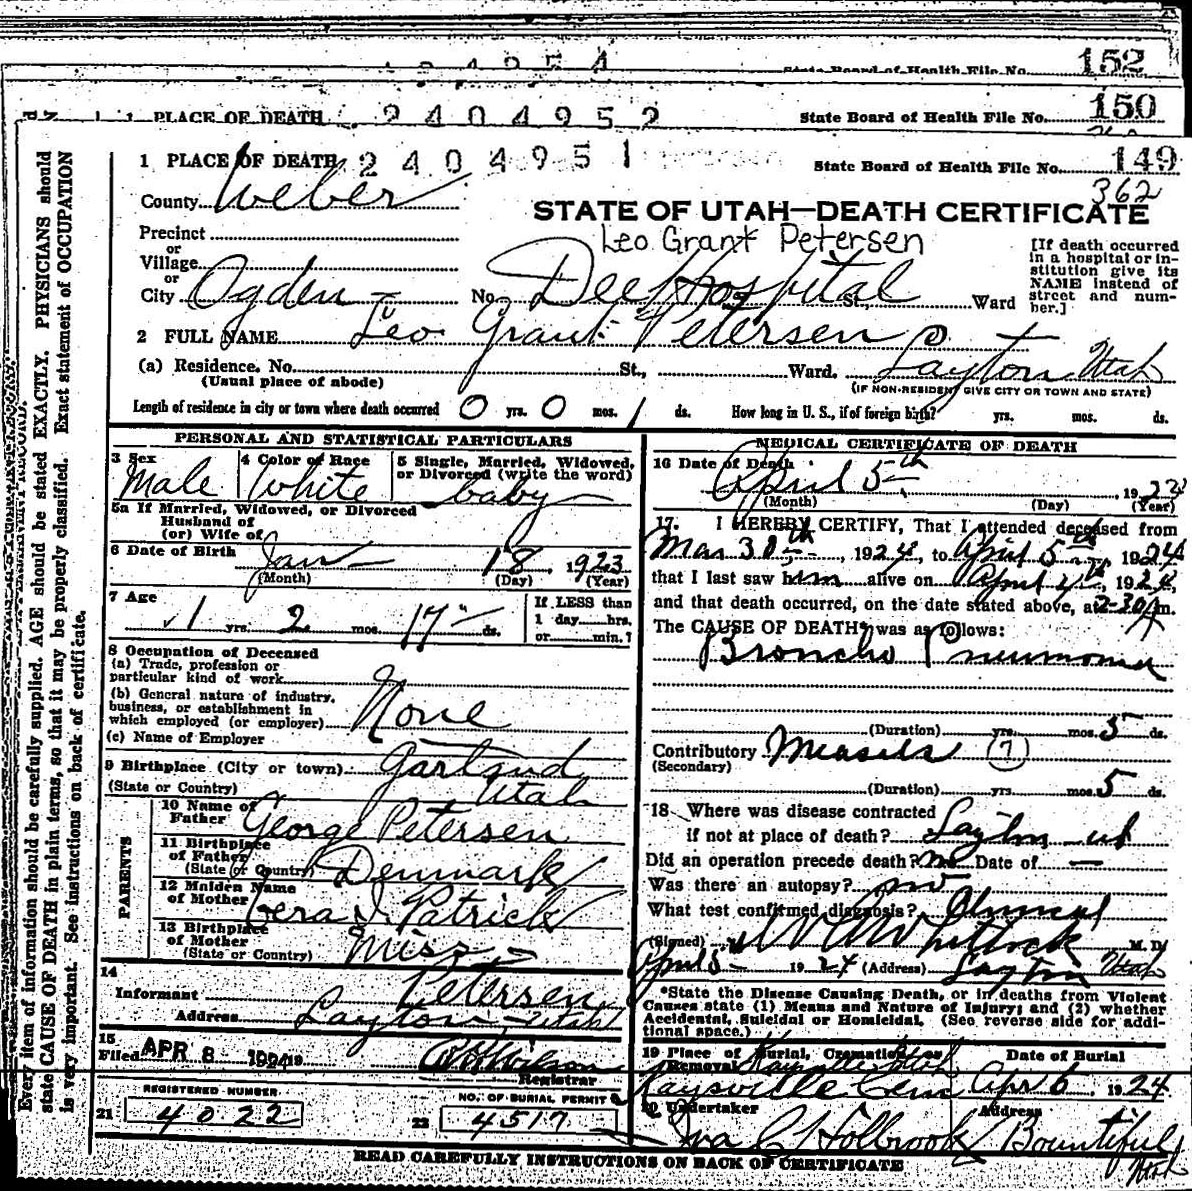 2404954
State Board of Health File No. 152
1 PLACE OF DEATH 2404952 State Board of Health File No. 150
1 PLACE OF DEATH 2404951 State Board of Health File No. 149
362
County Weber
STATE OF UTAH—DEATH CERTIFICATE
Leo Grant Petersen
Precinct
or
Village
or
City Ogden No. Dee Hospital St., Ward
[If death occurred
in a hospital or in-
stitution give its
NAME instead of
street and num-
ber.]
2 FULL NAME Leo Grant Petersen
(a) Residence. No. St., Ward. Layton Utah
(Usual place of abode) (IF NON-RESIDENT GIVE CITY OR TOWN AND STATE)
Length of residence in city or town where death occurred 0 yrs. 0 mos. 1 ds. How long in U. S., if of foreign birth? yrs. mos. ds.
PERSONAL AND STATISTICAL PARTICULARS
3 Sex 4 Color of Race 5 Single, Married, Widowed,
or Divorced (write the word)
Male White baby
5a If Married, Widowed, or Divorced
Husband of
(or) Wife of
6 Date of Birth Jan 18, 1923
(Month) (Day) (Year)
7 Age 1 yrs. 2 mos. 17 ds.
If LESS than
1 day hrs.
or min.?
8 Occupation of Deceased
(a) Trade, profession or
particular kind of work
(b) General nature of industry,
business, or establishment in
which employed (or employer) None
(c) Name of Employer
9 Birthplace (City or town) Garland
(State or Country) Utah
PARENTS
10 Name of
Father George Petersen
11 Birthplace
of Father
(State or Country) Denmark
12 Maiden Name
of Mother Vera J. Patrick
13 Birthplace
of Mother
(State or Country) Miss
14
Informant Petersen
Address Layton Utah
15
Filed APR 8 1924 Wilson
Registrar
REGISTERED NUMBER NO. OF BURIAL PERMIT
21 4022 22 4517
MEDICAL CERTIFICATE OF DEATH
16 Date of Death April 5th, 1924
(Month) (Day) (Year)
17. I HEREBY CERTIFY, That I attended deceased from
Mar 30th, 1924, to April 5th, 1924
that I last saw him alive on April 4th, 1924,
and that death occurred, on the date stated above, at 2-30 A m.
The CAUSE OF DEATH* was as follows:
Broncho Pneumonia
(Duration) yrs. mos. 5 ds.
Contributory Measels (7)
(Secondary)
(Duration) yrs. mos. 5 ds.
18 Where was disease contracted
if not at place of death? Layton ut
Did an operation precede death? no Date of —
Was there an autopsy? no
What test confirmed diagnosis? Clinical
(Signed) Whitlock M. D.
April 5 1924 (Address) Layton Utah
*State the Disease Causing Death, or in deaths from Violent
Causes state (1) Means and Nature of Injury; and (2) whether
Accidental, Suicidal or Homicidal. (See reverse side for addi-
tional space.)
19 Place of Burial, Cremation or Date of Burial
Removal Kaysville Utah
Kaysville Cem Apr 6 1924
20 Undertaker Address
Iva C Holbrook Bountiful
Utah
READ CAREFULLY INSTRUCTIONS ON BACK OF CERTIFICATE
Every item of information should be carefully supplied. AGE should be stated EXACTLY. PHYSICIANS should
state CAUSE OF DEATH in plain terms, so that it may be properly classified. Exact statement of OCCUPATION
is very important. See instructions on back of certificate.